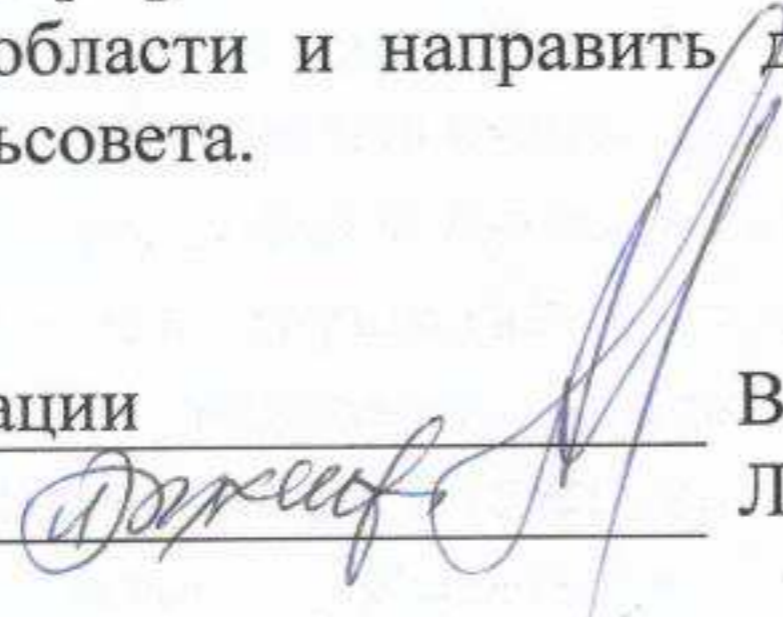 области и направить д
ьсовета.
ации В
Л